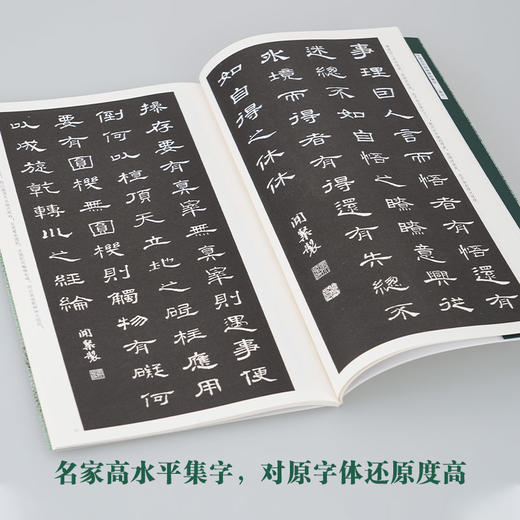 事理因人言而悟者有悟還有
迷總不如自悟之瞭瞭意興從
外境而得者有得還有失總不
如自得之休休
操存要有真宰無真宰則遇事便
倒何以植頂天立地之砥柱應用
要有圓機無圓機則觸物有礙何
以成旋乾轉川之經綸
名家高水平集字，对原字体还原度高